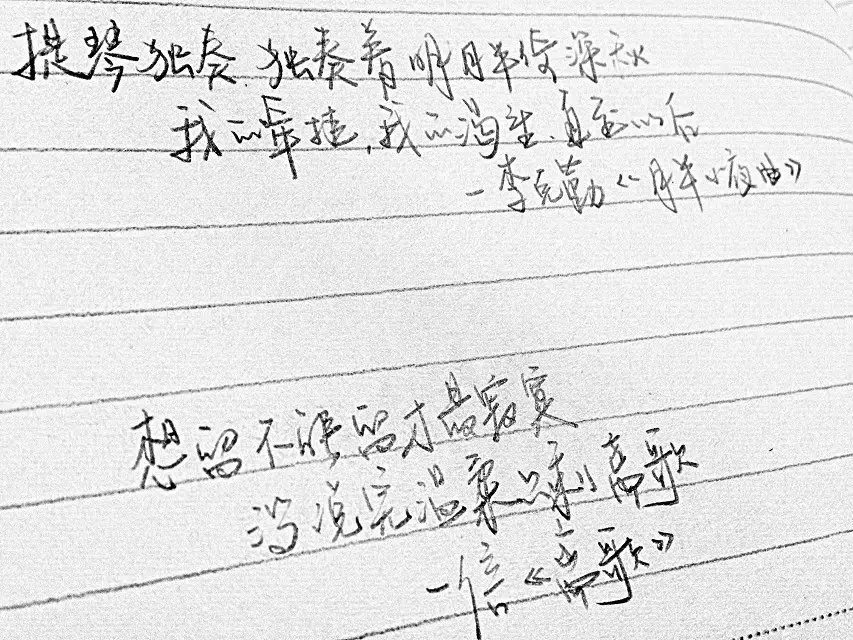 提琴独奏.独奏着明月半倚深秋
我的牵挂,我的渴望、直至以后
-李克勤《月半小夜曲》
想留不能留才最寂寞
没说完温柔只剩离歌
-信《离歌》